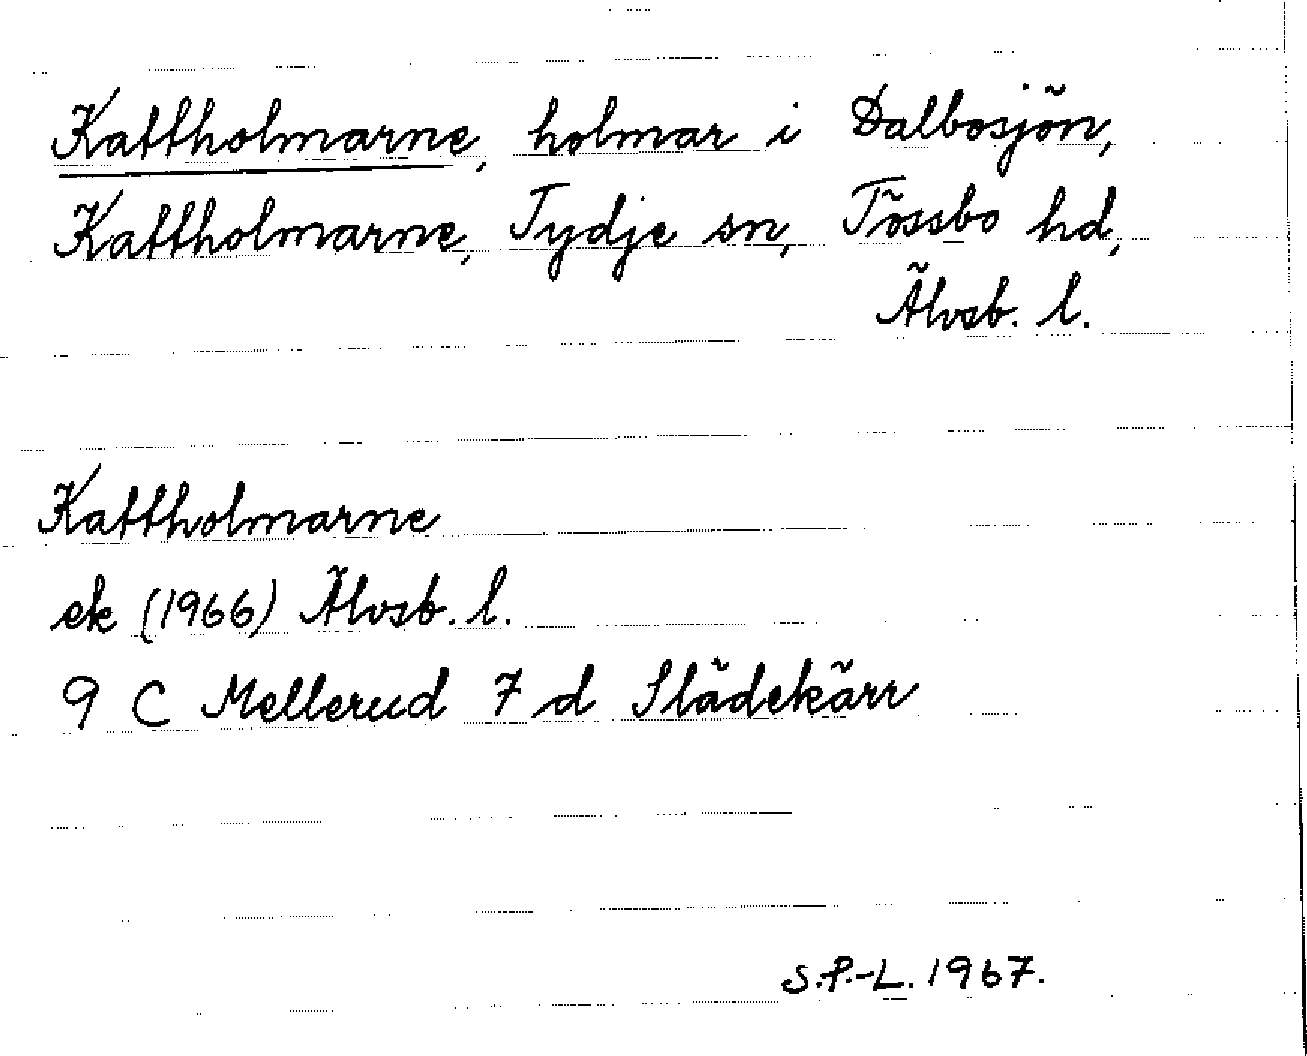 Kattholmarne, holmar i Dalbosjön,
Kattholmarne, Tydje sn, Tössbo hd,
Älvsb. l.
Kattholmarne
ek (1966) Älvsb. l.
9 C Mellerud 7 d Slädekärr
S.P.-L. 1967.